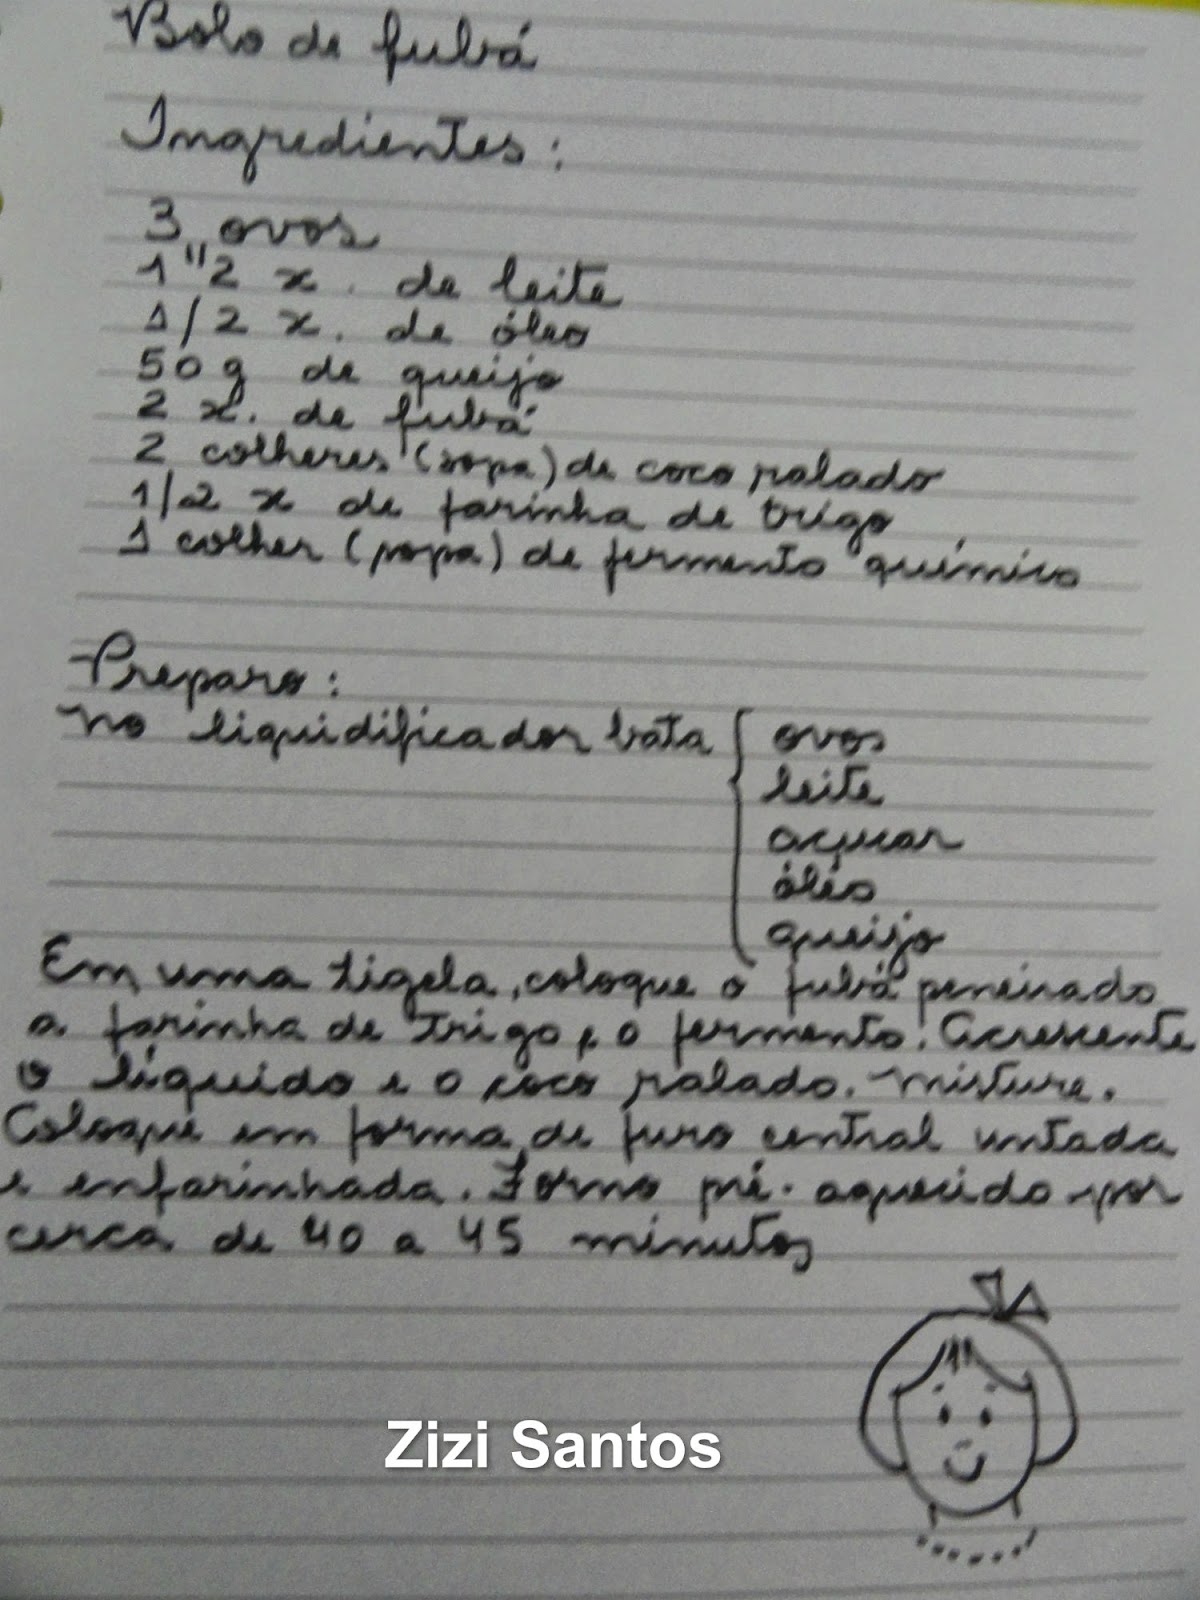 Bolo de fubá
Ingredientes:
3 ovos
1 "2 x. de leite
1/2 x. de óleo
50 g de queijo
2 x. de fubá
2 colheres (sopa) de coco ralado
1/2 x de farinha de trigo
1 colher (sopa) de fermento químico
Preparo:
No liquidificador bata { ovos
leite
açucar
óleo
queijo
Em uma tigela, coloque o fubá peneirado
a farinha de trigo e o fermento. Acrescente
o líquido e o coco ralado. Misture.
Coloque em forma de furo central untada
e enfarinhada. Forno pré-aquecido por
cerca de 40 a 45 minutos
Zizi Santos